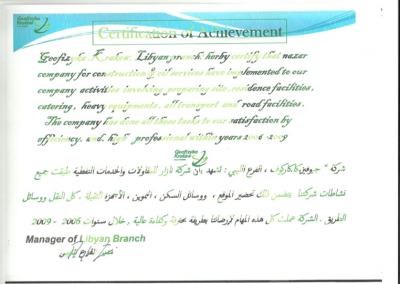 Geofizyka
Kraków
Certification of Achievement
Geofizyka Krakow, Libyan branch, herby certify that nazar
company for construction & oil services have implemented to our
company activities involving preparing site, residence facilities,
catering, heavy equipments, all transport and road facilities.
The company has done all these tasks to our satisfaction by
efficiency, and high professional within years 2006-2009
Geofizyka
Kraków
شركة " جيوفيزيكا كراكوف ، الفرع الليبي : تشهد بأن شركة نازار للمقاولات والخدمات النفطية طبقت جميع
نشاطات شركتنا يتضمن ذلك تحضير الموقع ، ووسائل السكن ، التموين ، الأجهزة الثقيلة ، كل النقل ووسائل
الطريق . الشركة عملت كل هذه المهام لإرضائنا بطريقة وكفاءة عالية , خلال سنوات 2006 - 2009
Manager of Libyan Branch